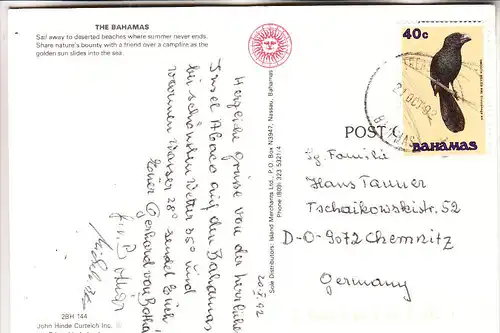 THE BAHAMAS
Sail away to deserted beaches where summer never ends.
Share nature's bounty with a friend over a campfire as the
golden sun slides into the sea.
Herzliche Grüsse von der herrlichen
Insel Abaco auf den Bahamas
bei schönstem Wetter 35° und
warmem Wasser 28° sendet Euch
Euer Gerhard
20.X.92
2BH 144
John Hinde Curteich Inc.
Sole Distributors: Island Merchants Ltd., P.O. Box N3947, Nassau, Bahamas
Phone (809) 323-5321/4
40c
BAHAMAS
OCT 92
POST
Fam ilie
Hans Tanner
Tschaikowskistr. 52
D-O-9072 Chemnitz
Germany